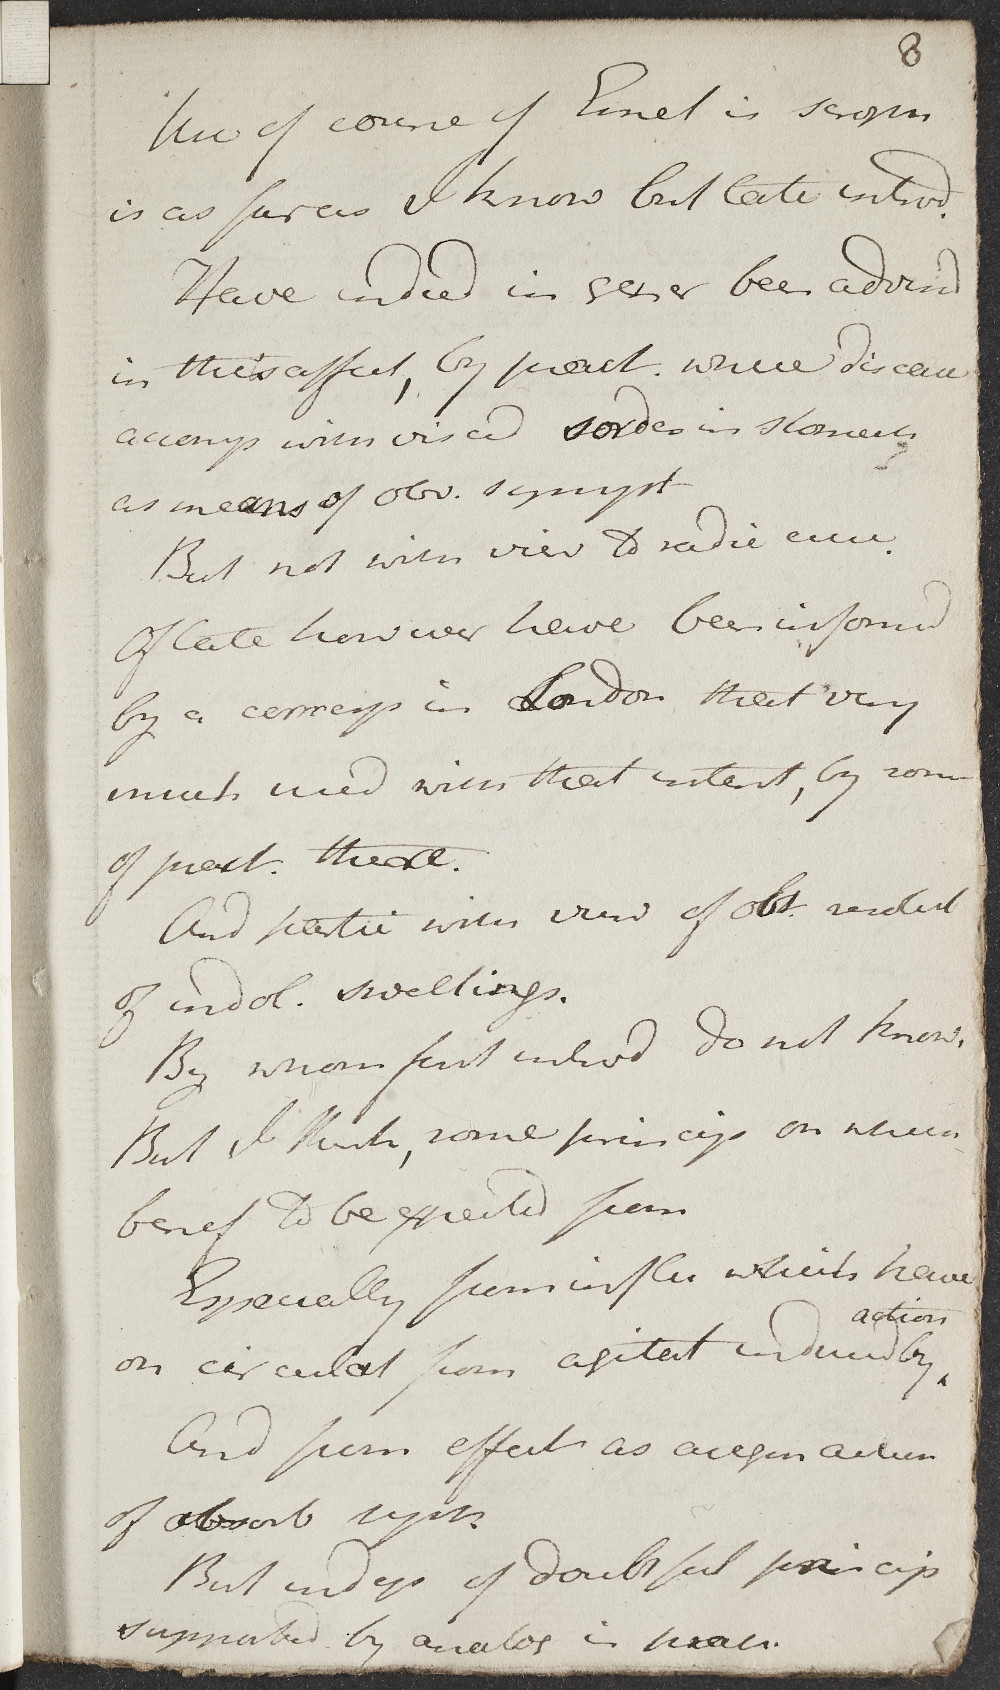 8
Use of course of Emet in scroph
is as far as I know but late introd.
Have indeed in gener been advised
in this affect, by pract. where disease
accomp with viscid sordes in stomach
as means of obv. sympt
But not with view to radic cure.
Of late however have been informd
by a corresp in London that very
much used with that intent, by some
of pract. there.
And partic with view of obt. resolut
of indol. swellings.
By whom first introd do not know.
But I think, some princip on which
benef to be expected from
Especially from influ which have
action
on circulat from agitat induced by
And from effect as augm action
of absorb syst.
But indep of doubtful princip
supported by analog in pract.